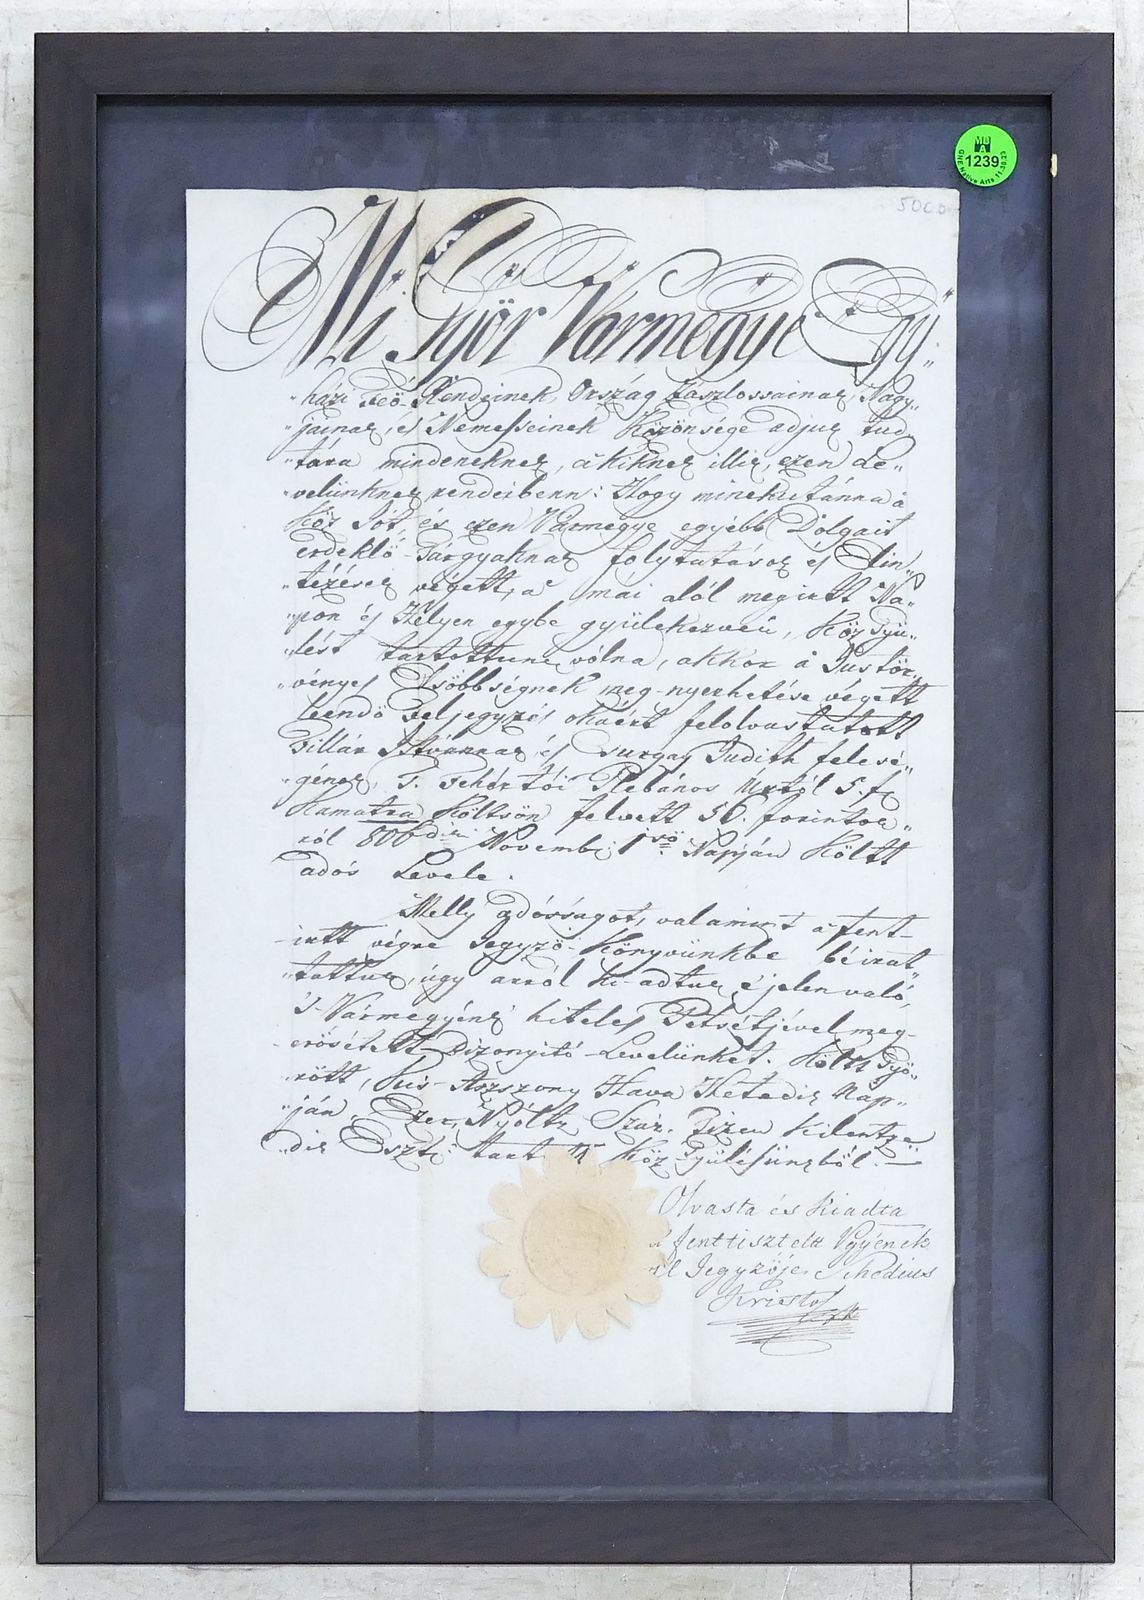 MBA
1239
GNE Native Arts 11.30.23
5000
Mi Győr Vármegye Egy-
"házi Feö-Rendeinek, Ország Zászlossainak, Nagy-
"jainak, és Nemesseinek Közönsége adjuk tud
"tára mindeneknek, a' kiknek illik, ezen Le-
"velünknek rendeibenn: Hogy minekutánna a'
Köz Jót, és ezen Vármegye egyébb Dolgait
érdeklö Tárgyaknak folytatások és Elin-
"tézések végett, a' mái alól megirtt Na-
"pon és Helyen egybe gyülekezvén, Köz Gyü-
"lést tartottunk vólna, akkor a' Justör,
"vényes Elsöbbségnek meg-nyerhetése végett
Leendö Feljegyzés okáért felolvastatott
Fillár Istvánnak, és Csurgay Judith felesé-
"gének, T. Fehértói Plébános Úrtól 5. fr
Kamatra Költsön felvett 50. forintok-
ról 806dik Novemb: 1sö Napján Költt
adós Levele.
Melly adósságot, valamint a' fent-
irtt végre Jegyzö-Könyvünkbe béirat
"tattuk, úgy arról ki-adtuk é jelenvaló,
's Vármegyénk hiteles Petsétjével meg-
erösétett Bizonyitó-Levelünket. Költt Györ
rött, Kis-Aszszony Hava Hetedik Nap-
"ján, Ezer, Nyóltz Száz, Tizen Kilentze-
"dik Eszt: tartt Köz Gyülésünkböl.—
Olvasta és Kiadta
a' fenttisztelt Vgyének
al Jegyzöje Schedius
Kristof